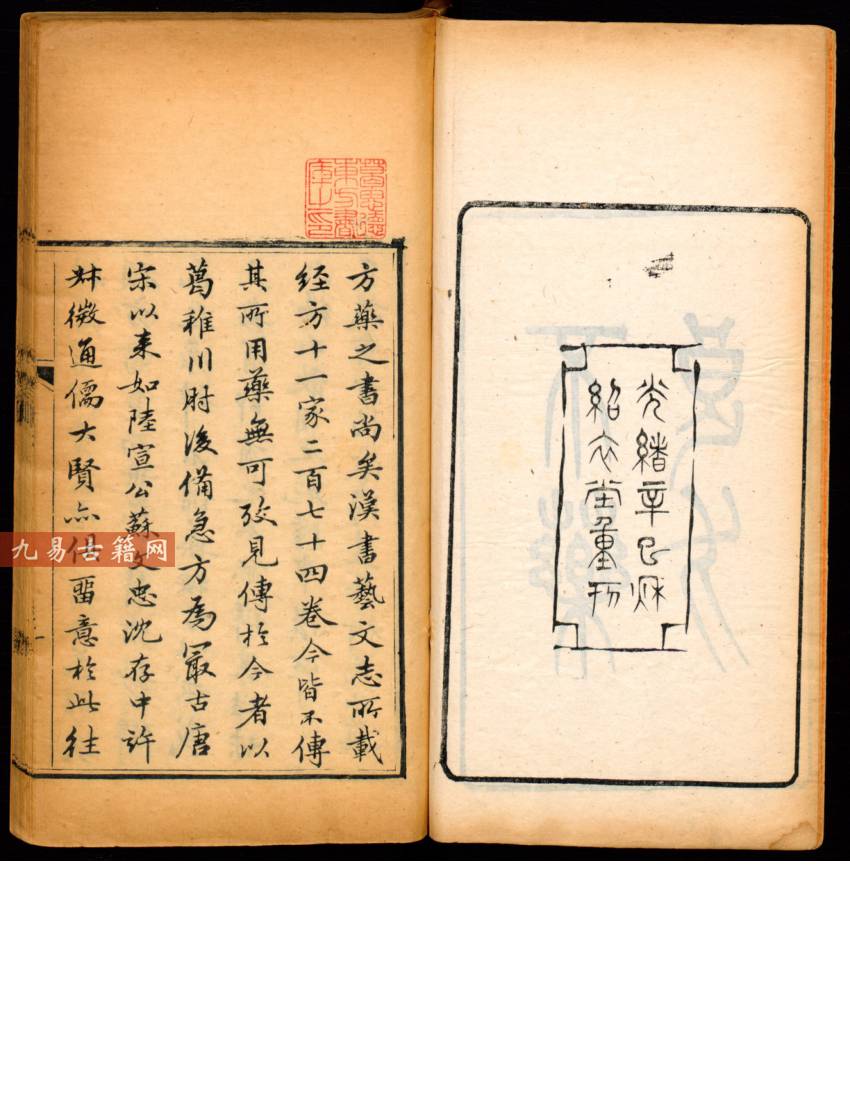 光緒辛巳秋
紹衣堂重刊
方藥之書尚矣漢書藝文志所載
經方十一家二百七十四卷今皆不傳
其所用藥無可攷見傳於今者以
葛稚川肘後備急方為冣古唐
宋以來如陸宣公蘇文忠沈存中許
叔微通儒大賢亦俱畱意於此往
葛思德東方書庫之印
九易古籍网